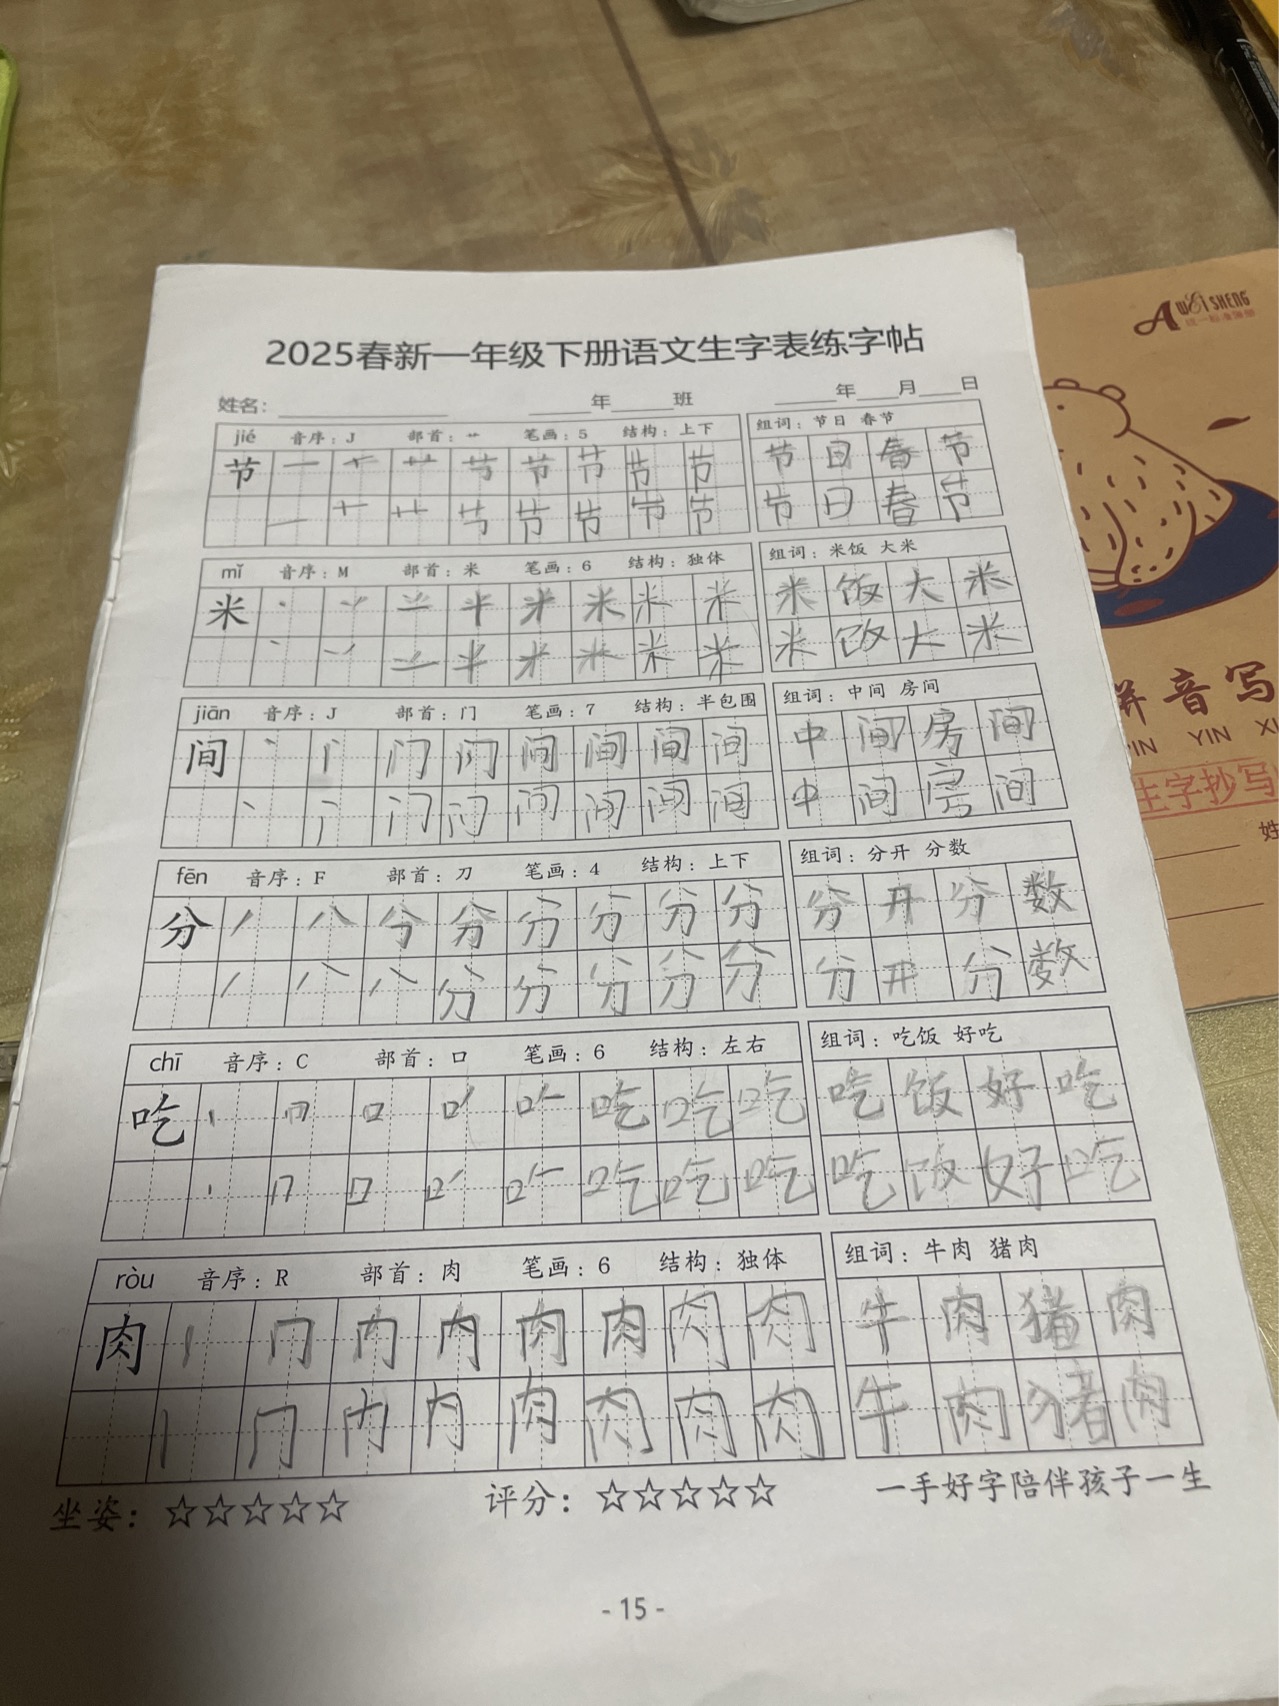 2025春新一年级下册语文生字表练字帖
姓名：________ ____年____班 ____年__月__日
jié 音序：J 部首：艹 笔画：5 结构：上下 组词：节日 春节
节 一 十 艹 节 节 节 节 节 节 日 春 节
一 十 艹 节 节 节 节 节 节 日 春 节
mǐ 音序：M 部首：米 笔画：6 结构：独体 组词：米饭 大米
米 丶 丷 䒑 半 米 米 米 米 米 饭 大 米
丶 丷 䒑 半 米 米 米 米 米 饭 大 米
jiān 音序：J 部首：门 笔画：7 结构：半包围 组词：中间 房间
间 丶 门 门 问 间 间 间 中 间 房 间
丶 门 门 问 间 间 间 中 间 房 间
fēn 音序：F 部首：刀 笔画：4 结构：上下 组词：分开 分数
分 丿 八 分 分 分 分 分 分 分 开 分 数
丿 八 八 分 分 分 分 分 分 开 分 数
chī 音序：C 部首：口 笔画：6 结构：左右 组词：吃饭 好吃
吃 丨 口 吃 吃 吃 吃 饭 好 吃
丨 口 吃 吃 吃 吃 饭 好 吃
ròu 音序：R 部首：肉 笔画：6 结构：独体 组词：牛肉 猪肉
肉 丨 冂 内 内 肉 肉 肉 肉 牛 肉 猪 肉
丨 冂 内 内 肉 肉 肉 肉 牛 肉 猪 肉
坐姿：☆☆☆☆☆ 评分：☆☆☆☆☆ 一手好字陪伴孩子一生
- 15 -
AWEI SHENG
拼音写
YIN YIN
生字抄写
姓